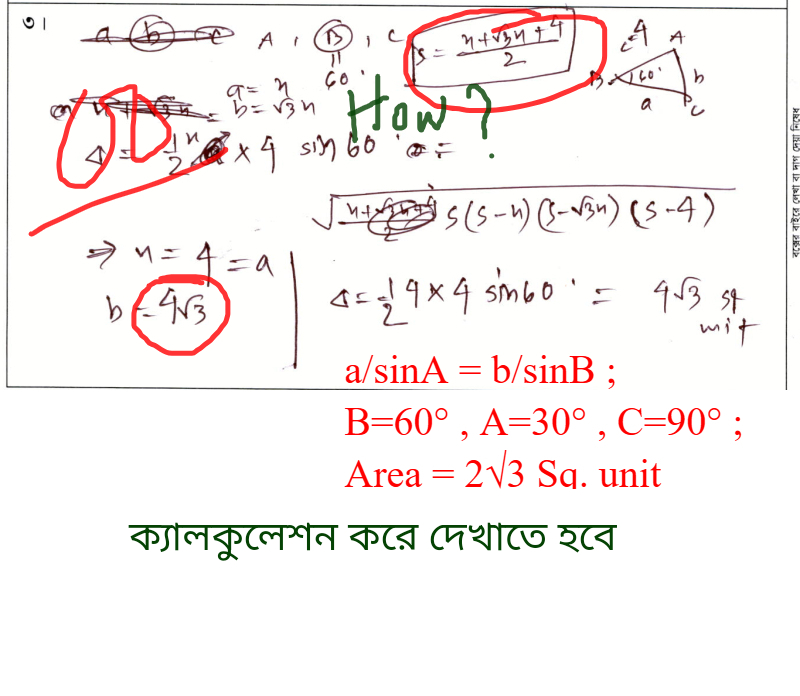 ৩।
a b c A, B, C S = x+√3x+4 / 2 c=4 A
60°
a = x B 60° b
b = √3x a C
How?
Δ = 1/2 x × 4 sin 60° =
√ S(S-x)(S-√3x)(S-4)
⇒ x = 4 = a
b = 4√3 Δ = 1/2 4 × 4 sin 60° = 4√3 sq
unit
a/sinA = b/sinB ;
B=60° , A=30° , C=90° ;
Area = 2√3 Sq. unit
ক্যালকুলেশন করে দেখাতে হবে
বক্সের বাইরে লেখা বা দাগ দেয়া নিষেধ